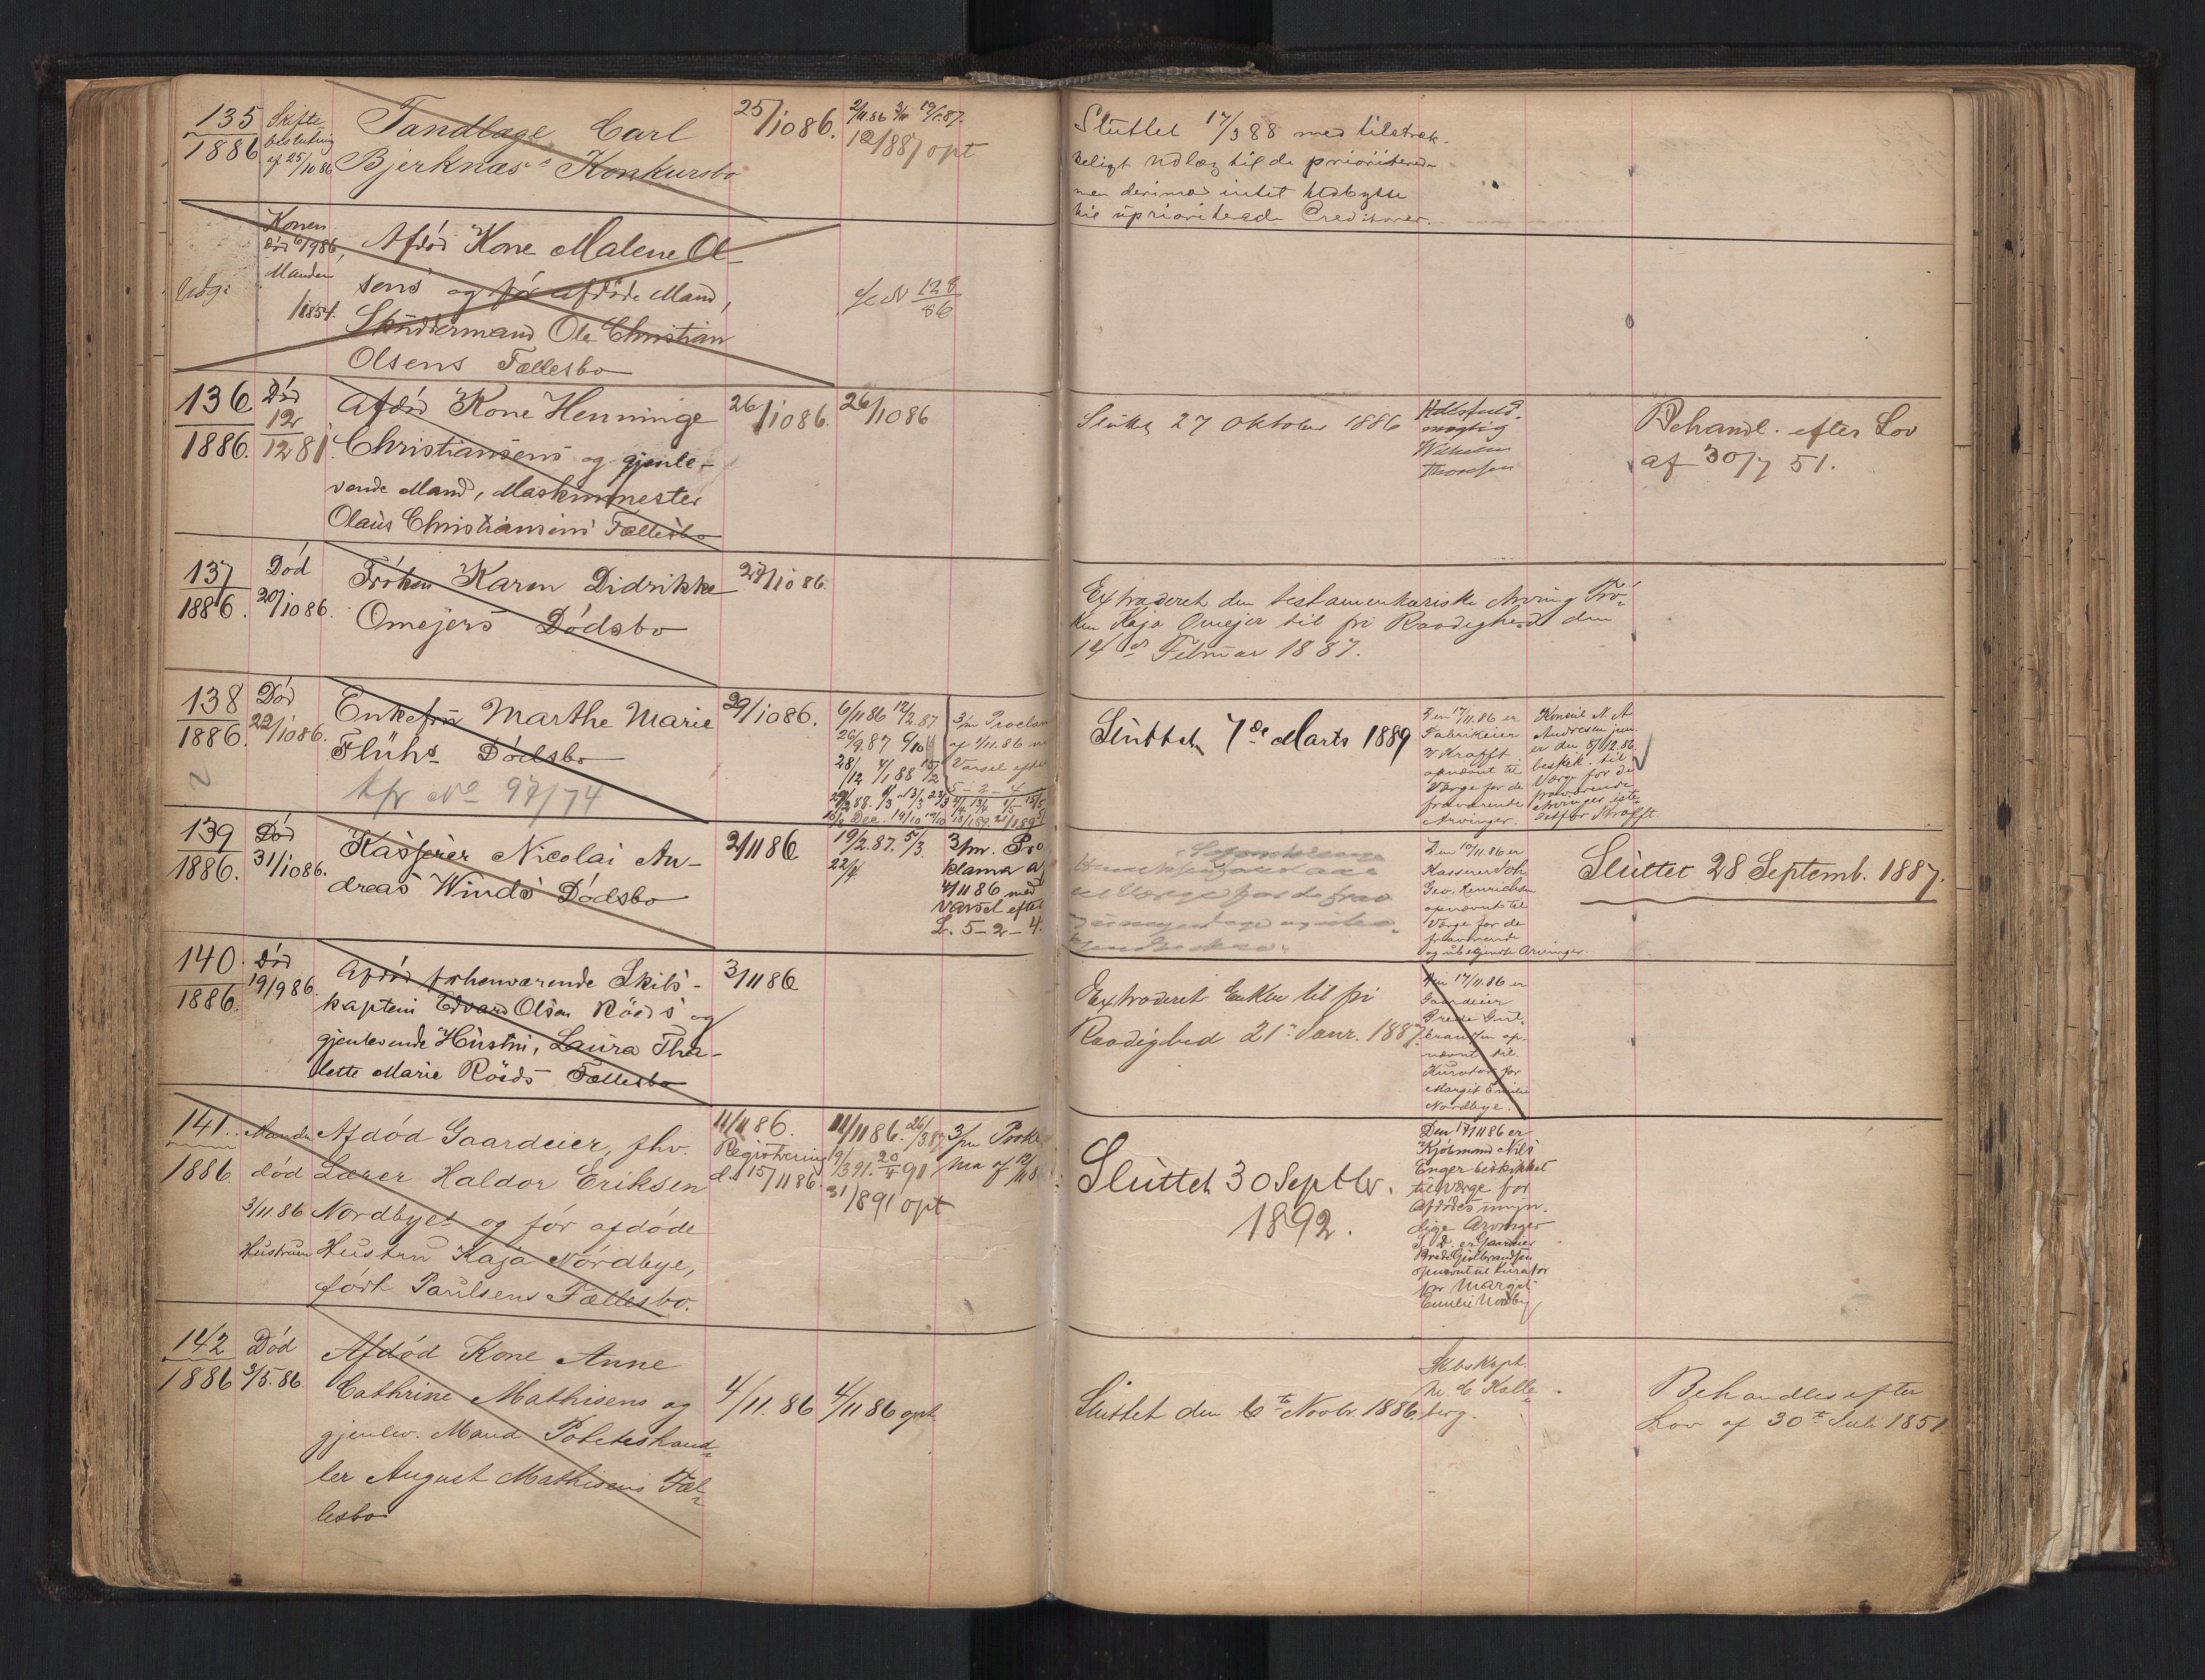 135
1886
Skifte
beslutning
af 25/10 86
Tandlæge Carl
Bjerknæs's Konkursbo
25/10 86.
2/11 86
12/8 87 opt
Sluttet 17/3 88 med tilstræk-
keligt Udlæg til de prioriterede
men derimod intet Udbytte
til upriorit erede Creditorer.
Udgr
Konen
død 6/9 86,
Manden
/1854.
Afdød Kone Malene Ol-
sens og før afdøde Mand,
Sküddermand Ole Christian
Olsens Fællesbo
cfr N 128/86
136
1886.
Død
12/12 81
Afdød Kone Henninge
Christiansens og gjenle-
vende Mand, Maskinmester
Olaüs Christiansens Fællesbo
26/10 86.
26/10 86
Sluttet 27 Oktober 1886
Wilhelm
Thoresen
Behandl. efter Lov
af 30/7 51.
137
1886.
Død
20/10 86.
Frøken Karen Didrikke
Omejers Dødsbo
27/10 86.
Extraderet den testamentariske Arving Frø-
ken Kaja Omejer til fri Raadighed den
14de Februar 1887.
138
1886.
Død
22/10 86.
Enkefrü Marthe Marie
Flühs Dødsbo
kfr No 97/74
29/10 86.
6/11 86 12/2 87
26/9 87 6/10
28/12 4/1 88 15/2
3/m Proclam
af 4/11 86 m
Varsel efter
5-2-4
Slüttet 7de Marts 1889
Den 17/11 86 er
Fabrikeier
Krafft
opnævnt til
Værge for de
fraværende
Arvinger.
Konsul N. A.
Andresen jun.
er den 5/12 86
beskik. til
Værge for de
fraværende
Arvinger iste-
detfor Krafft.
139
1886.
Død
31/10 86.
Kasserer Nicolai An-
dreas Winds Dødsbo
2/11 86
19/2 87. 5/3.
22/4
3/m. Pro
klama af
4/11 86 med
Varsel efter
L. 5-2-4.
Den 10/11 86 er
Kasserer Joh.
Geo. Henrichsen
opnævnt til
Værge for de
fraværende
og ubekjendte Arvinger.
Sluttet 28 Septemb. 1887.
140.
1886.
Død
19/9 86.
Afdød forhenværende Skibs-
kaptein Edvard Olsen Röeds og
gjenlevende Hüstrü, Laüra Tha-
lette Marie Röeds Fællesbo
3/11 86
Extraderet Enken til fri
Raadighed 21. Janr. 1887.
Den 17/11 86 er
Gaardeier
Brede Gul-
brandsen op-
nævnt til
Kurator for
Margit Emilie
Nordbye.
141.
1886.
Manden
død
3/11 86
Hustruen
Afdød Gaardeier, fhv.
Lærer Haldor Eriksen
Nordbyes og før afdøde
Hüstrü Kaja Nordbye,
født Paülsens Fællesbo.
11/11 86.
Registrering
d. 15/11 86.
11/11 86. 26/3 87
19/3 91. 20/4 91
31/8 91 opt
3/m Prokla
ma af 12/11 8
Slüttet 30 Septbr.
1892.
Den 17/11 86 er
Kjøbmand Nils
Enger beskikket
til Værge for
Afdødes umyn-
dige Arvinger
S. D. er Gaardeier
Brede Gulbrandsen
opnævnt til Kurator
for Margit
Emilie Nordby
142
1886
Død
3/5. 86
Afdød Kone Anne
Cathrine Mathisens og
gjenlev. Mand Potteshand-
ler August Mathisens Fæl-
lesbo
4/11. 86
4/11 86 opt
Sluttet den 6te Novbr. 1886.
Skibskapt.
M. C. Kalle-
berg.
Behandles efter
Lov af 30te Juli 1851